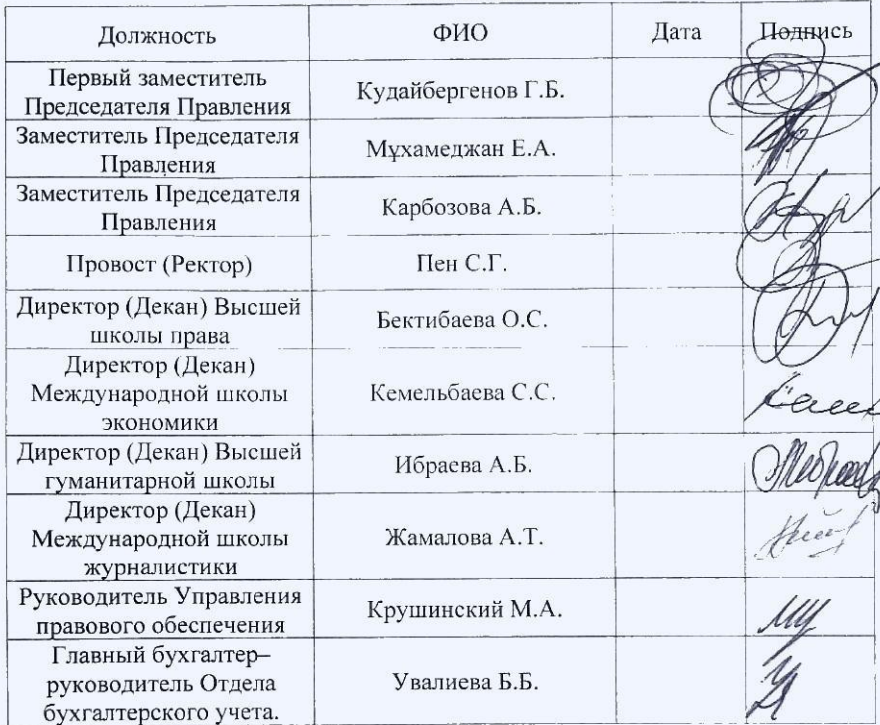 Должность ФИО Дата Подпись
Первый заместитель
Председателя Правления
Кудайбергенов Г.Б.
Заместитель Председателя
Правления
Мұхамеджан Е.А.
Заместитель Председателя
Правления
Карбозова А.Б.
Провост (Ректор)
Пен С.Г.
Директор (Декан) Высшей
школы права
Бектибаева О.С.
Директор (Декан)
Международной школы
экономики
Кемельбаева С.С.
Директор (Декан) Высшей
гуманитарной школы
Ибраева А.Б.
Директор (Декан)
Международной школы
журналистики
Жамалова А.Т.
Руководитель Управления
правового обеспечения
Крушинский М.А.
Главный бухгалтер–
руководитель Отдела
бухгалтерского учета.
Увалиева Б.Б.